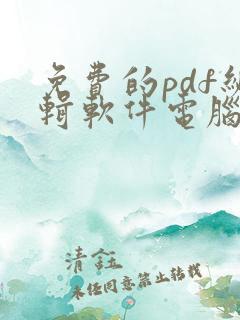 免費的pdf編
輯軟件電腦
清鈺
未任同意禁止轉載